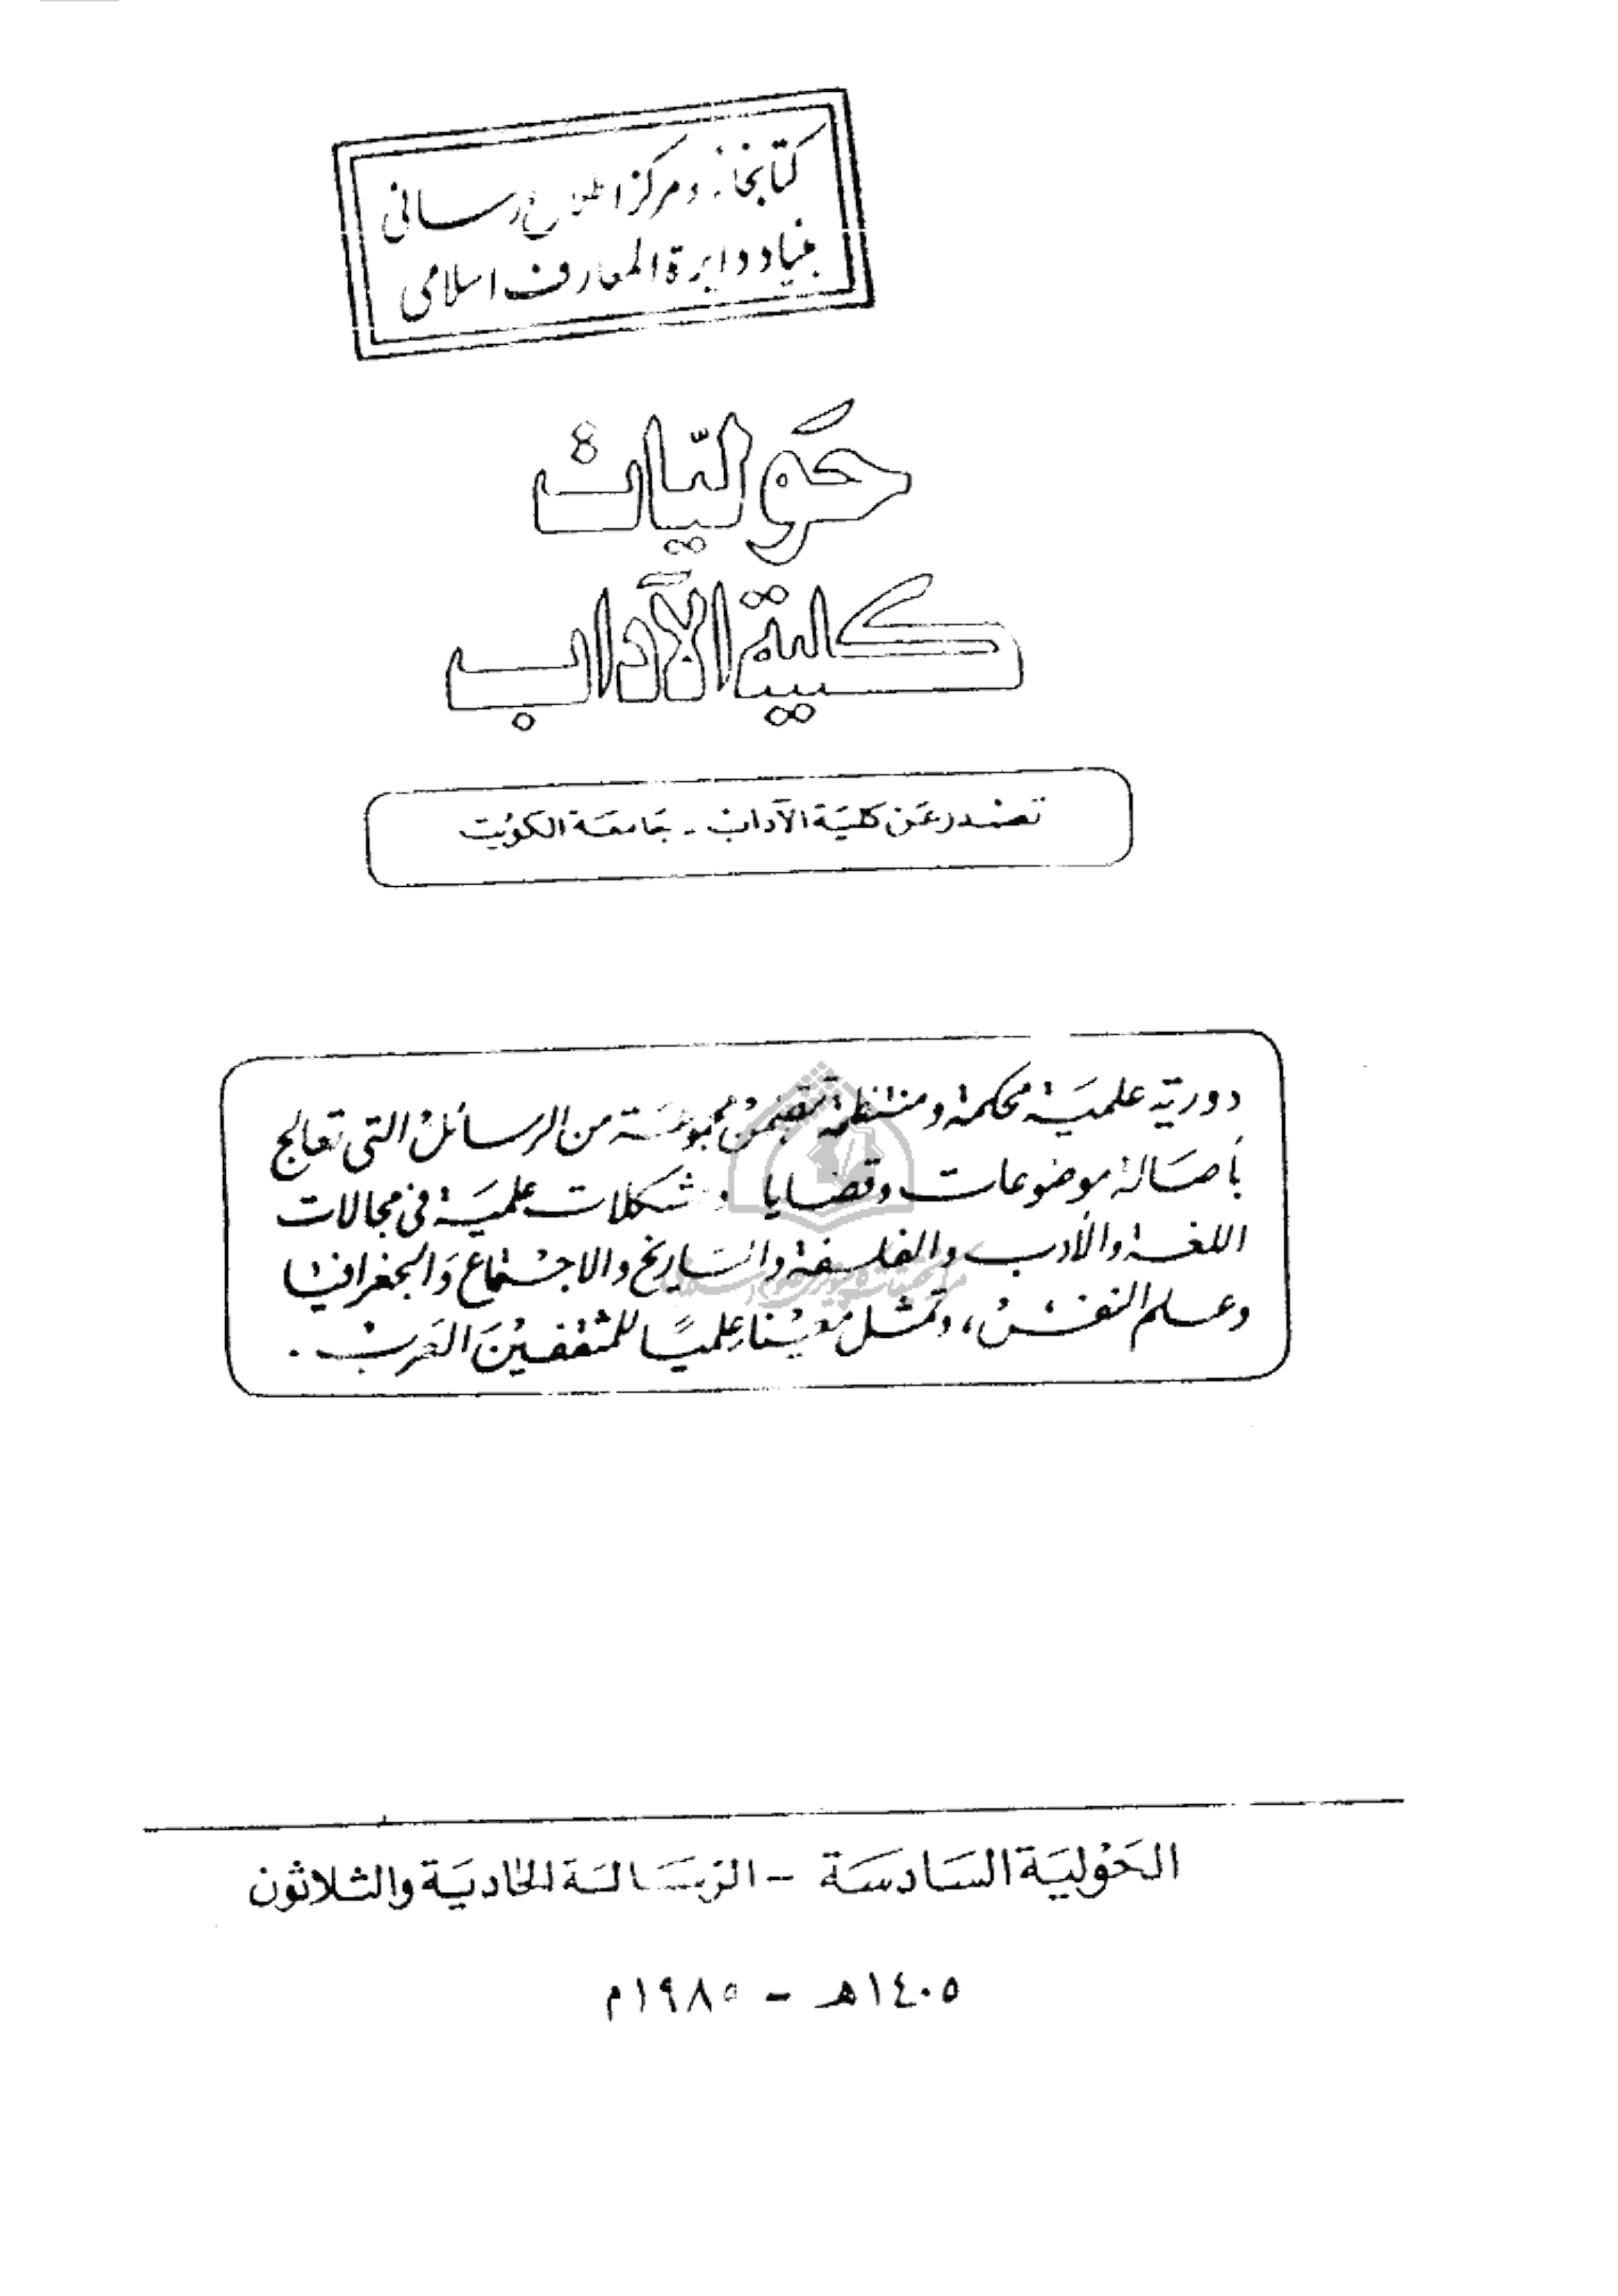 كتابخانه و مركز اطلاع رسانی
بنیاد دایرة المعارف اسلامی
حَوليّات
كلية الآداب
تصْدر عَن كليَة الآدابْ - جَامعَة الكوَيت
دورية علميَة محكمة ومنتظمة تتضمنْ مجموعَة من الرسائلْ التي تعالج
بأصَالة موضوعات وقضايا ومشكلات علميَة في مجالات
اللغة والأدب والفلسفة والتاريخ والاجتماع وَالجغرافيا
وعلم النفسْ، وتمثل معينْا علميًا للمثقفينْ العَربْ .
الحَوْليَة السَادسَة - الرسَالة الحَاديَة والثلاثون
١٤٠٥هـ - ١٩٨٥م